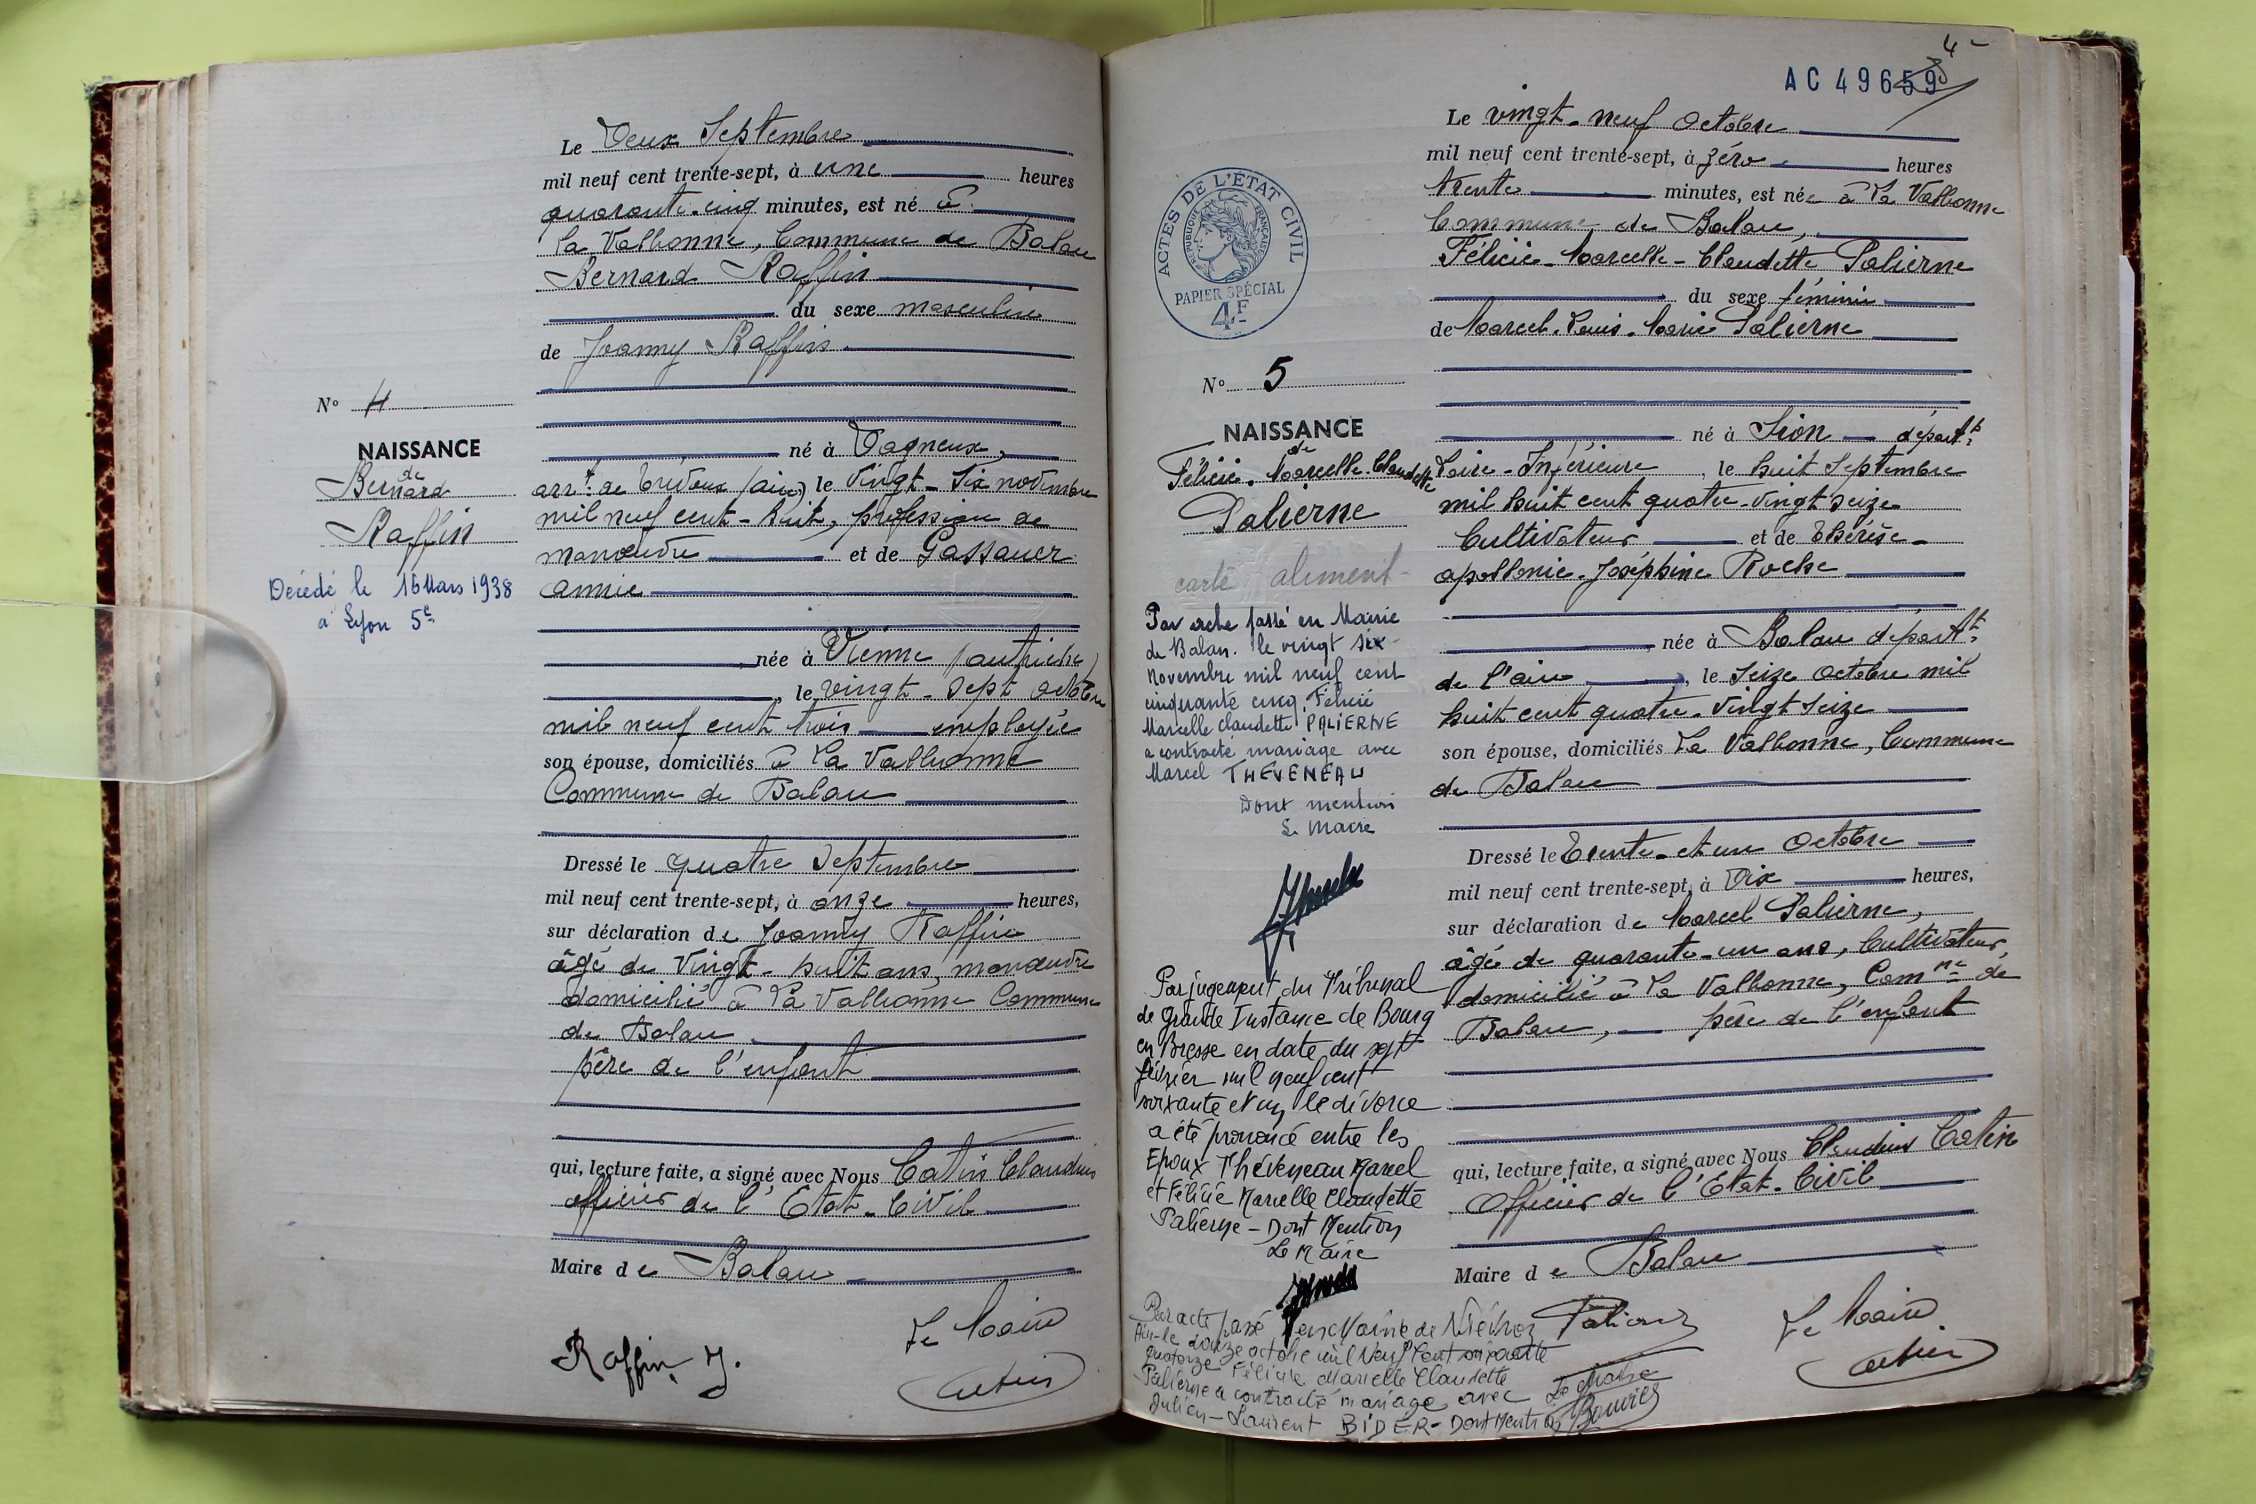 Le Deux Septembre
mil neuf cent trente-sept, à une heures
quarante-cinq minutes, est né à
La Valbonne, Commune de Balan
Bernard Raffin
du sexe masculin
de Joanny Raffin
né à Dagneux,
arrt de Trévoux (ain) le Vingt-six novembre
mil neuf cent-huit, profession de
manœuvre et de Gassauer
annie
née à Vienne (autriche)
, le vingt-sept octobre
mil neuf cent trois employée
son épouse, domiciliés à La Valbonne
Commune de Balan
Dressé le quatre Septembre
mil neuf cent trente-sept, à onze heures,
sur déclaration de Joanny Raffin
âgé de Vingt-huit ans, manœuvre
domicilié à La Valbonne Commune
de Balan
père de l'enfant
qui, lecture faite, a signé avec Nous Catin Claudius
officier de l'Etat-Civil
Maire de Balan
Raffin J.
Le Maire
Catin
No 4
NAISSANCE
de
Bernard
Raffin
Décédé le 16 Mars 1938
à Lyon 5e
4
AC 49659
Le vingt-neuf octobre
mil neuf cent trente-sept, à zéro heures
trente minutes, est née à La Valbonne
Commune de Balan,
Félicie-Marcelle-Claudette Palierne
du sexe féminin
de Marcel-Louis-Marie Palierne
né à Sion départt
Loire-Inférieure, le huit Septembre
mil huit cent quatre-vingt seize
Cultivateur et de Thérèse-
apollonie-Joséphine Roche
née à Balan départt
de l'ain, le seize octobre mil
huit cent quatre-vingt seize
son épouse, domiciliés La Valbonne, Commune
de Balan
Dressé le Trente-et un Octobre
mil neuf cent trente-sept, à Dix heures,
sur déclaration de Marcel Palierne,
âgé de quarante-un ans, Cultivateur,
domicilié à La Valbonne, Comne de
Balan, père de l'enfant
qui, lecture faite, a signé avec Nous Claudius Catin
Officier de l'Etat-Civil
Maire de Balan
Palierne
Le Maire
Catin
ACTES DE L'ÉTAT CIVIL
RÉPUBLIQUE FRANÇAISE
PAPIER SPÉCIAL
4F
No 5
NAISSANCE
de
Félicie-Marcelle-Claudette
Palierne
carte aliment-
Par acte passé en Mairie
de Balan. le vingt six
Novembre mil neuf cent
cinquante cinq, Félicie
Marcelle Claudette PALIERNE
a contracté mariage avec
Marcel THÉVENEAU
Dont mention
Le Maire
Par jugement du Tribunal
de grande Instance de Bourg
en Bresse en date du sept
février mil neuf cent
soixante et un le divorce
a été prononcé entre les
Epoux Théveneau Marcel
et Félicie Marcelle Claudette
Palierne - Dont Mention
Le Maire
Par acte passé en Mairie de
Ain-le douze octobre mil neuf cent soixante
quatorze Félicie Marcelle Claudette
Palierne a contracté mariage avec
Julien-Laurent BIDER-Dont Mention
Le Maire
Bouvier